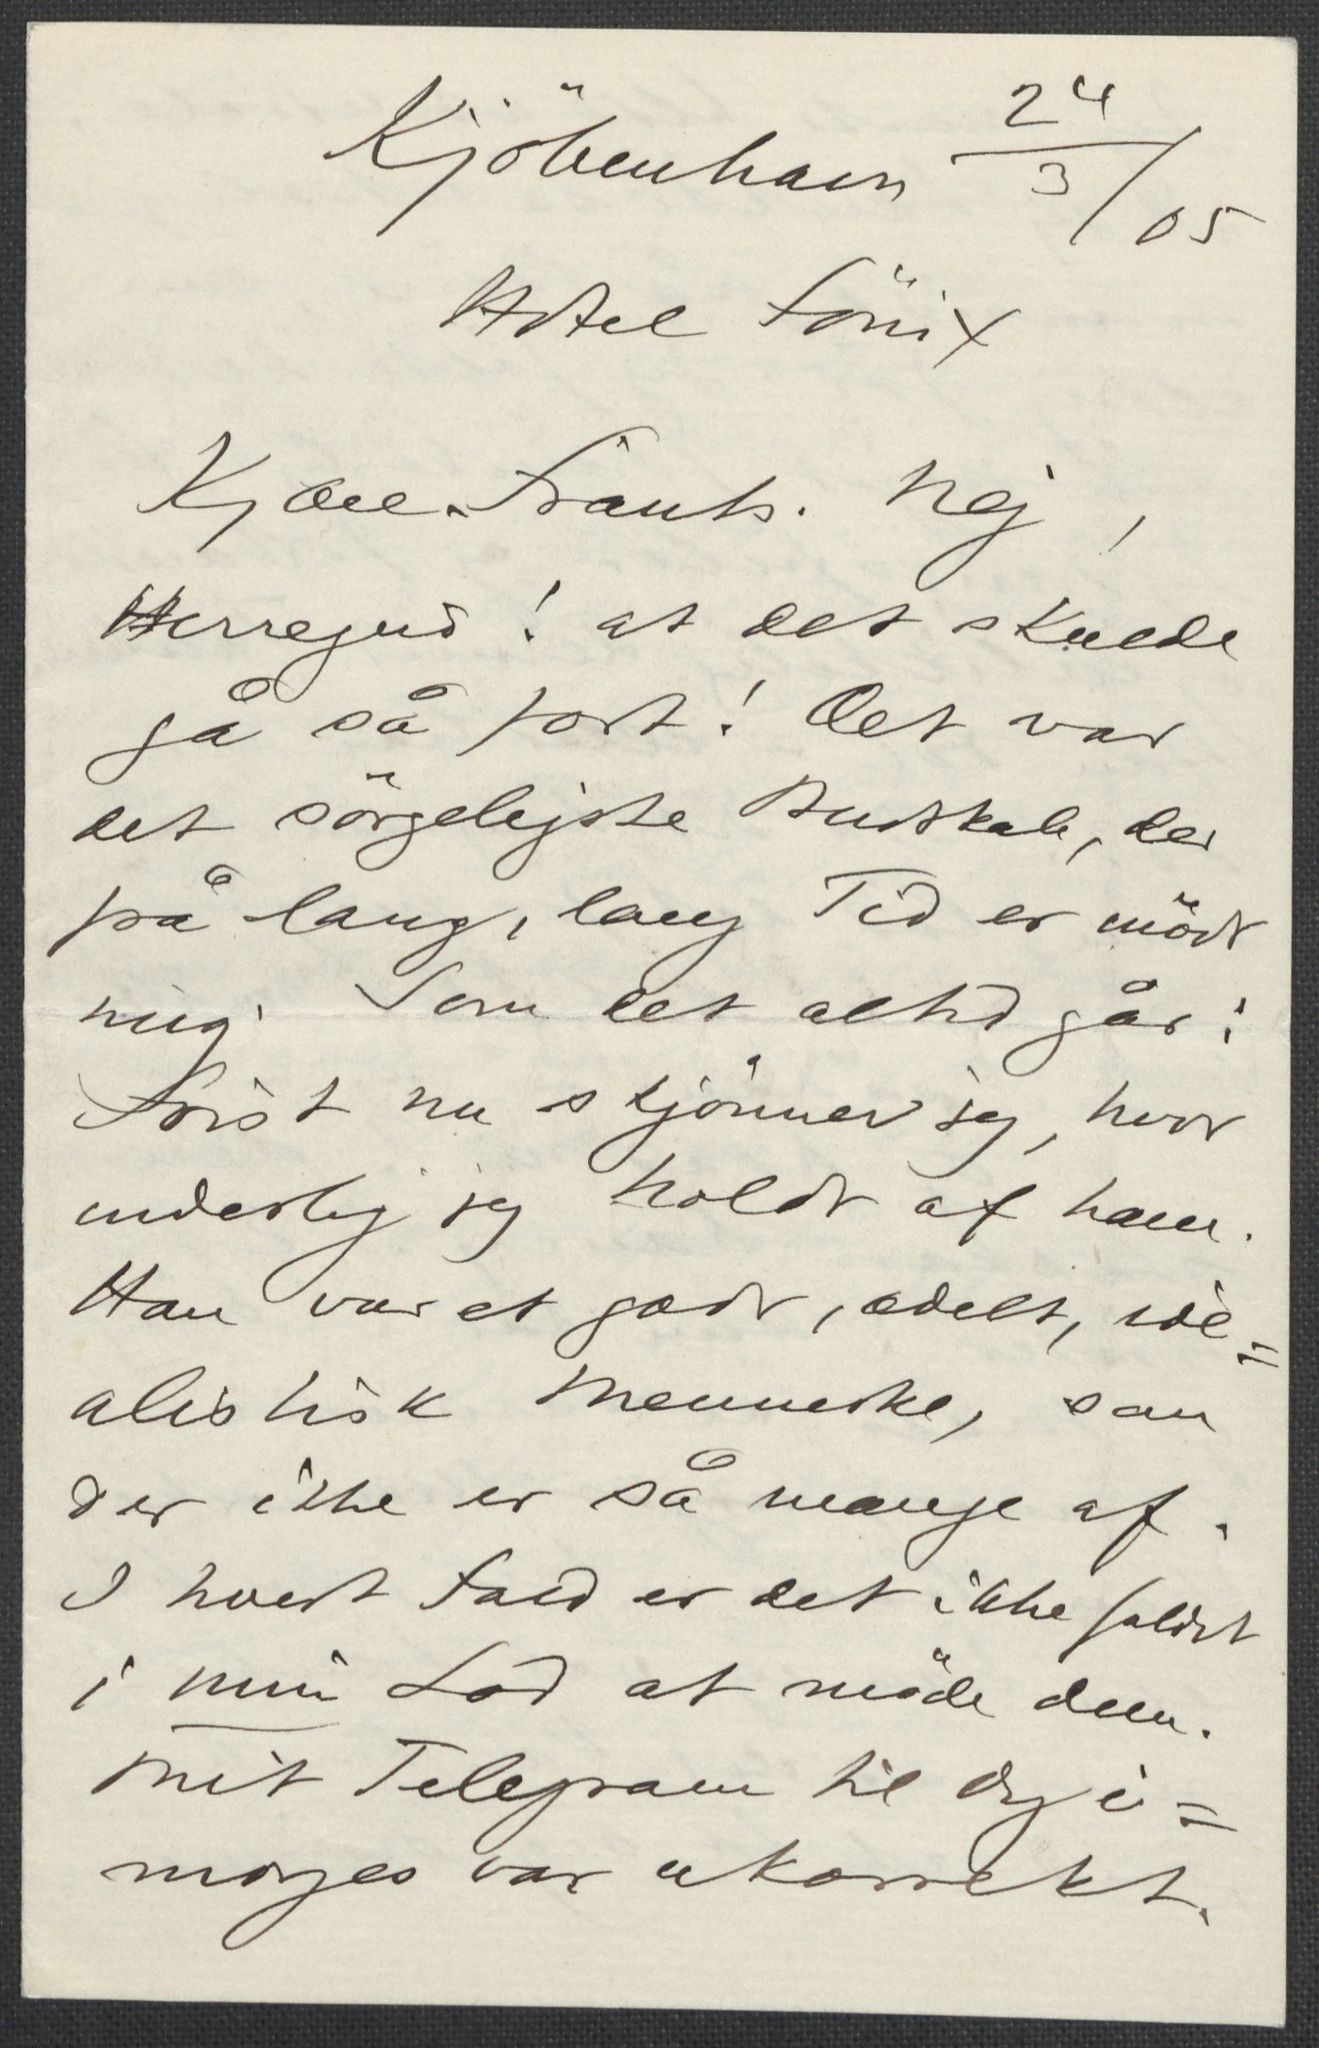 Kjöbenhavn 24/3/05
Hôtel Fönix
Kjære Frants. Nej,
Herregud! at det skulde
gå så fort! Det var
det sörgeligste Budskab, der
på lang, lang Tid er mödt
mig. Som det altid går:
Först nu skjönner jeg, hvor
inderlig jeg holdt af ham.
Han var et godt, ædelt, ide=
alistisk Menneske, som
der ikke er så mange af.
I hvert Fald er det ikke faldt
i min Lod at möde dem.
Mit Telegram til dig i=
morges var ukorrekt.